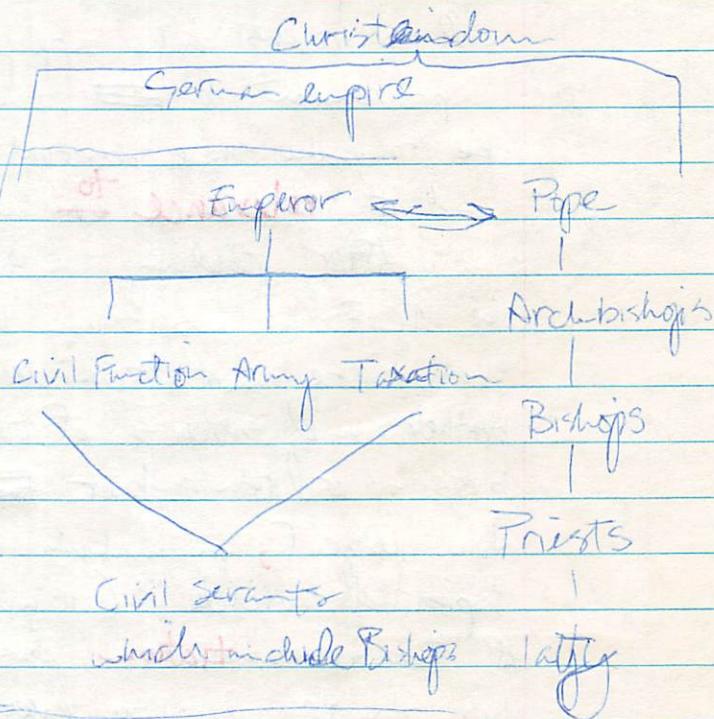 Christendom
German empire
Emperor Pope
Archbishops
Civil Function Army Taxation
Bishops
Priests
Civil servants
which include Bishops laity